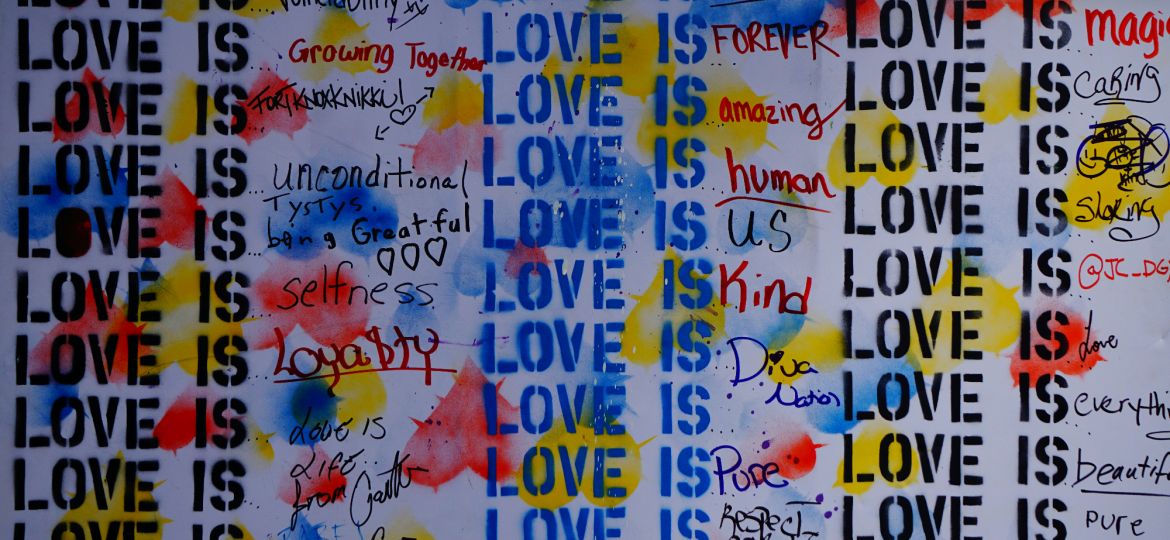 LOVE IS
LOVE IS... Growing Together
LOVE IS... FORTKNOXKNIKKU!
LOVE IS... unconditional
TysTys.
LOVE IS... being Greatful
LOVE IS... selfness
LOVE IS... Loya$ty
LOVE IS... LOVE IS
LIFE
from
LOVE IS...
LOVE IS
LOVE IS
LOVE IS... FOREVER
LOVE IS... amazing
LOVE IS... human
LOVE IS... US
LOVE IS... Kind
LOVE IS... Diva
Nation
LOVE IS...
LOVE IS... Pure
LOVE IS... RESPECT
LOVE IS... magic
LOVE IS... CaRing
LOVE IS...
LOVE IS...
LOVE IS... @JC_DG
LOVE IS... Love
LOVE IS... everythi
LOVE IS... beautif
LOVE IS... PURE